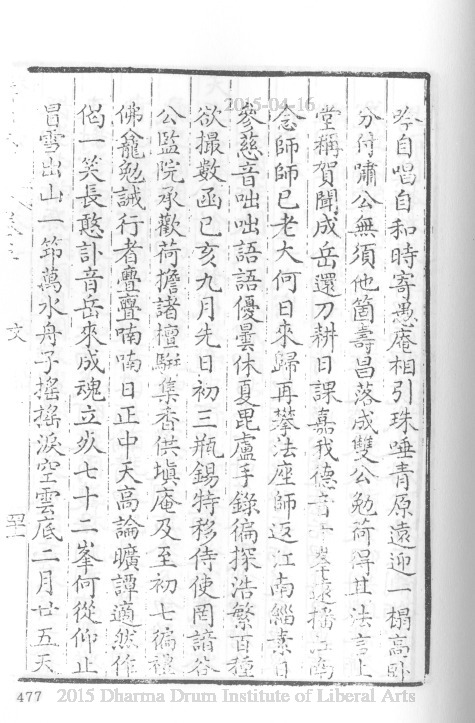 吟自唱自和時寄愚庵相引珠唾青原遠迎一榻高臥
分待嘯公無須他箇壽昌落成雙公勉荷得其法言上
堂稱賀聞成岳還刀耕日課嘉我德音
念師師已老大何日來歸再攀法座師返江南緇素日
參慈音咄咄語語優曇休夏毘盧手錄徧探浩繁百種
欲撮數函已亥九月先日初三瓶錫特移侍使罔諳谷
公監院承歡荷擔諸檀駢集香供塡庵及至初七徧禮
佛龕勉誡行者亹亹喃喃日正中天高論曠譚適然作
偈一笑長憨訃音岳來成魂立㱔七十二峯何從仰止
冒雪出山一笻萬水舟子搖搖淚空雲底二月廿五天
文
477
2015-04-16
2015 Dharma Drum Institute of Liberal Arts